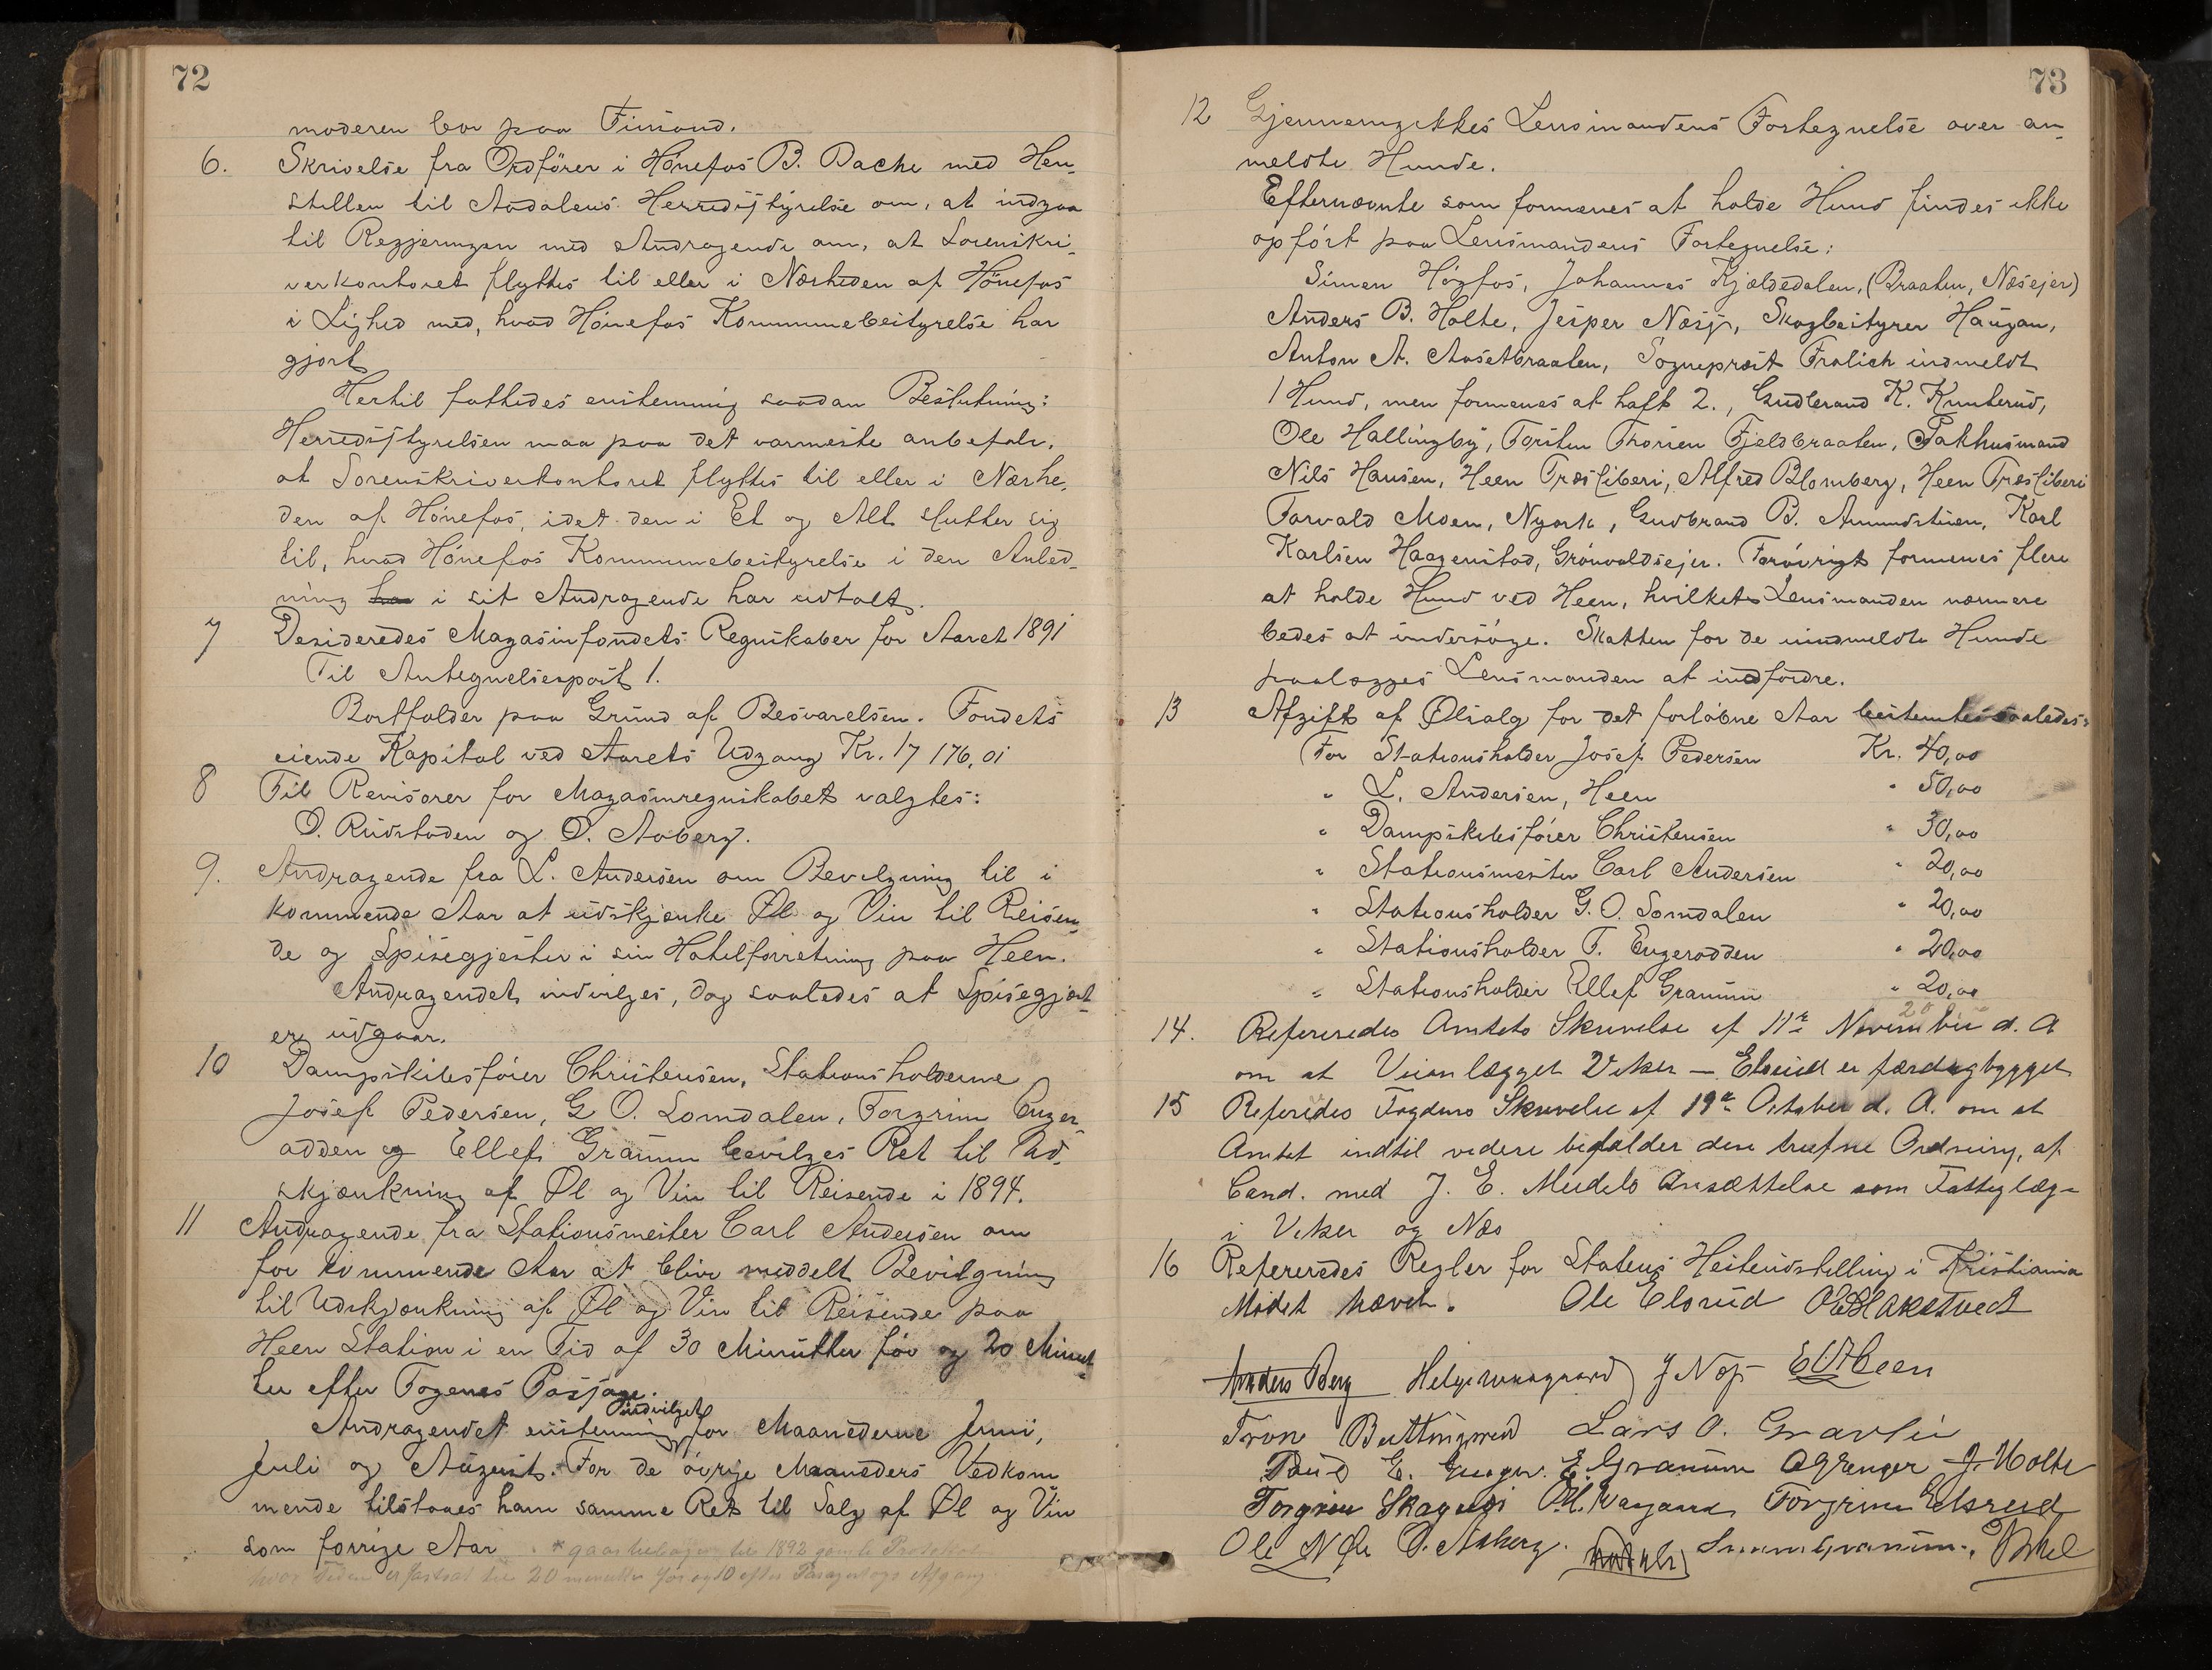 72
moderen bor paa Finsand.
6. Skrivelse fra Ordfører i Hønefos B. Bache med Hen-
stillen til Aadalens Herredsstyrelse om, at indgaa
til Regjeringen med Andragende om, at Sorenskri-
verkontoret flyttes til eller i Nærheden af Hønefos
i Lighed med, hvad Hønefos Kommunebestyrelse har
gjort
Hertil fattedes enstemmig saadan Beslutning:
Herredsstyrelsen maa paa det varmeste anbefale,
at Sorenskriverkontoret flyttes til eller i Nærhe-
den af Hønefos, idet den i Et og Alt slutter sig
til, hvad Hønefos Kommunebestyrelse i den Anled-
ning har i sit Andragende har udtalt.
7 Desideredes Magasinfondets Regnskaber for Aaret 1891
Til Antegnelsespost 1.
Bortfalder paa Grund af Besvarelsen. Fondets
eiende Kapital ved Aarets Udgang Kr. 17 176,01
8 Til Revisorer for Magasinregnskabet valgtes:
O. Rudstaden og O. Aaberg.
9. Andragende fra L. Andersen om Bevilgning til i
kommende Aar at udskjænke Øl og Vin til Reisen-
de og Spisegjester i sin Hotelforretning paa Heen.
Andragendet indvilges, dog saaledes at Spisegjest-
er udgaar.
10 Dampskibsfører Christensen, Stationsholderne
Josef Pedersen, G. O. Somdalen, Torgrim Enger-
odden og Ellef Granum bevilges Ret til Ud-
skjænkning af Øl og Vin til Reisende i 1894.
11 Andragende fra Stationsmester Carl Andersen om
for kommende Aar at blive meddelt Bevilgning
til Udskjænkning af Øl og Vin til Reisende paa
Heen Station i en Tid af 30 Minutter før og 20 Minut-
ter efter Togenes Passage.
indvilget
Andragendet enstemmig for Maanederne Juni,
Juli og August. For de øvrige Maaneders Vedkom
mende tilstaaes ham samme Ret til Salg af Øl og Vin
som forrige Aar * til 1892 gamle Protokol
hvor Tiden er fastsat til 20 minutter før og 10 efter
73
12 Gjennemgikkes Lensmandens Fortegnelse over an-
meldte Hunde.
Efternævnte som formenes at holde Hund findes ikke
opført paa Lensmandens Fortegnelse:
Simen Høgfos, Johannes Kjældedalen, (Braaten, Næsejer)
Anders B. Holte, Jesper Næsje, Skogbestyrer Haugan,
Anton A. Aasetbraaten, Sogneprest Frølich indmeldt
1 Hund, men formenes at haft 2., Gudbrand K. Knuterud,
Ole Hallingby, Torsten Thorsen Fjeldbraaten, Pakhusmand
Nils Hansen, Heen Træsliberi, Alfred Blomberg, Heen Træsliberi
Torvald Moen, Nyork, Gudbrand B. Amundstuen, Karl
Karlsen Haagenstad, Grønvoldsejer. Forøvrigt formenes flere
at holde Hund ved Heen, hvilket Lensmanden nærmere
bedes at undersøge. Skatten for de uindmeldte Hunde
paalægges Lensmanden at indfordre.
13 Afgift af Ølsalg for det forløbne Aar bestemtes saaledes:
For Stationsholder Josef Pedersen Kr. 40,00
" L. Andersen, Heen " 50,00
" Dampskibsfører Christensen " 30,00
" Stationsmester Carl Andersen " 20,00
" Stationsholder G. O. Somdalen " 20,00
" Stationsholder T. Engerodden " 20,00
" Stationsholder Ellef Granum " 20,00
20
14. Refereredes Amtets Skrivelse af 11te November d. A
om at Veianlægget Viker — Elsrud er færdigbygget
15 Refereredes Fogdens Skrivelse af 19de October d. A. om at
Amtet indtil videre bifalder den trufne Ordning, af
Cand. med J. E. Ansættelse som Fattiglæge
i Viker og Næs
16 Refereredes Regler for Statens Hesteudstilling i Kristiania
Mødet hævet. Ole Elsrud
Anders Berg J Næs
Tron Buttingsrud Lars O. Gravli
E. E. Granum J. Holte
Torgrim Torgrim Elsrud
Ole N Øle O. Aaberg.